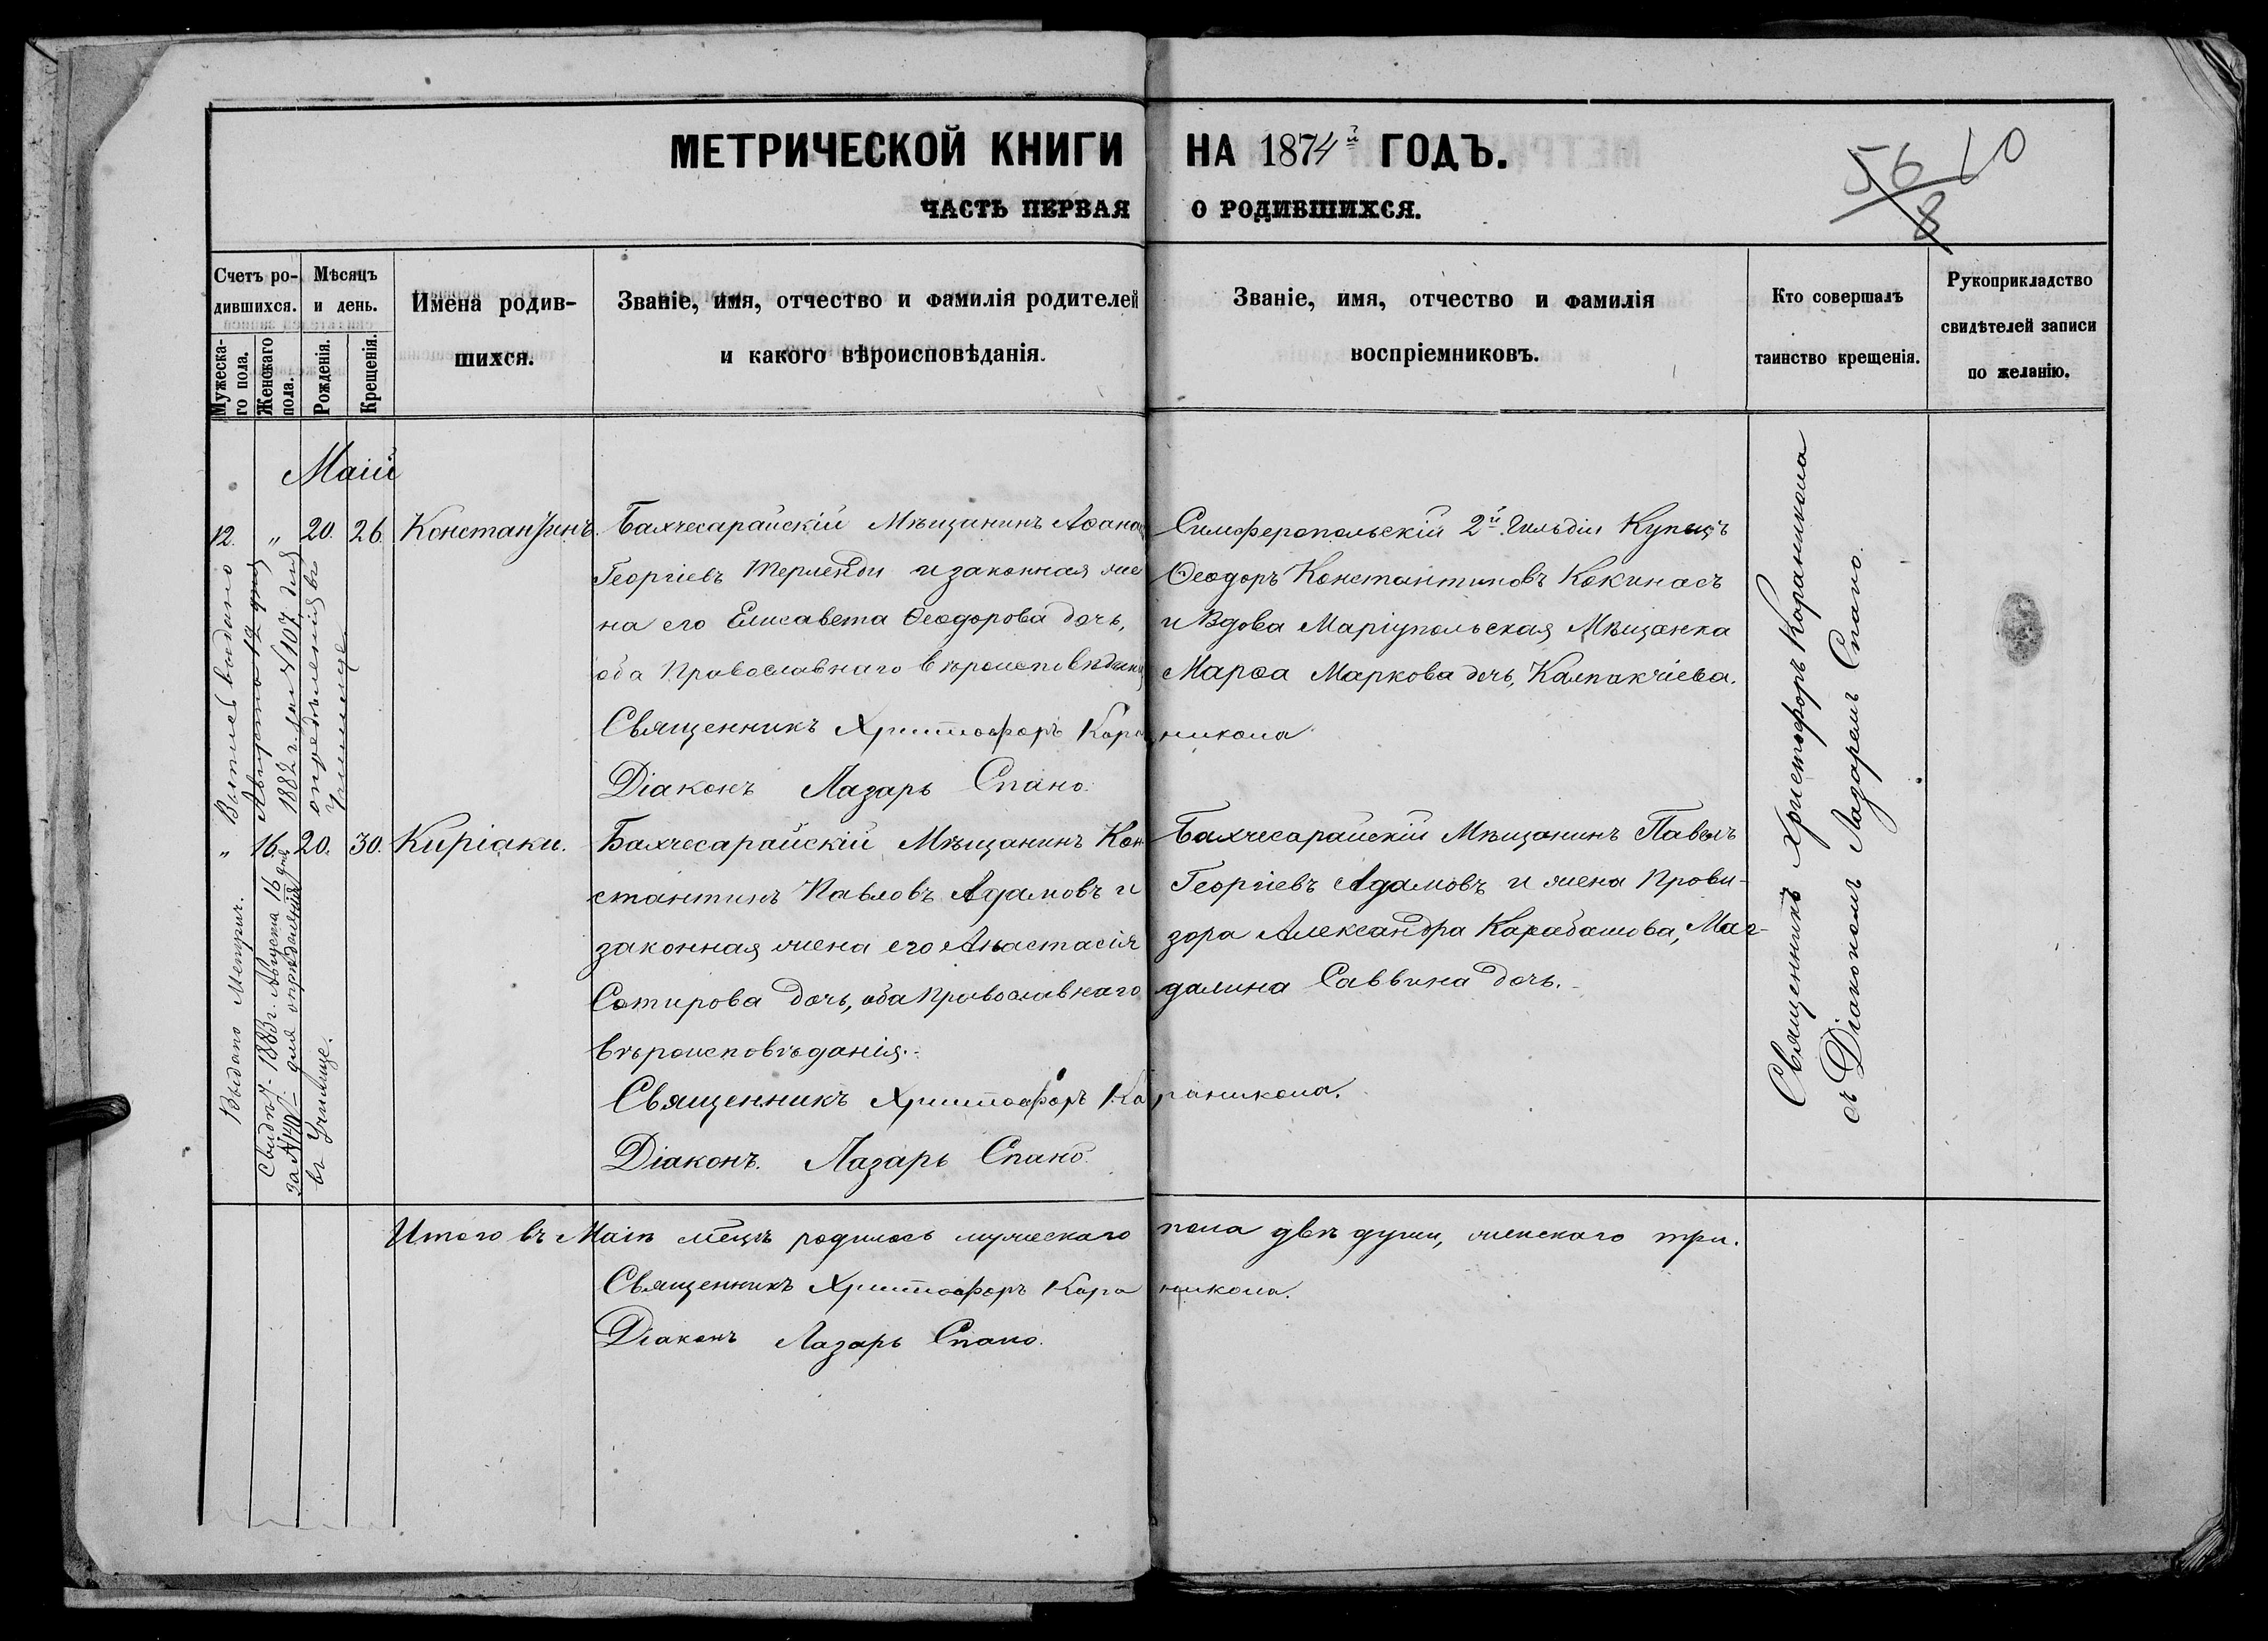 МЕТРИЧЕСКОЙ КНИГИ НА 1874й ГОДЪ.
ЧАСТЬ ПЕРВАЯ О РОДИВШИХСЯ.
56 10
8
Счетъ ро-
дившихся.
Мужеска-
го пола.
Женскаго
пола.
Мѣсяцъ
и день.
Рожденія.
Крещенія.
Имена родив-
шихся.
Званіе, имя, отчество и фамилія родителей
и какого вѣроисповѣданія.
Званіе, имя, отчество и фамилія
воспріемниковъ.
Кто совершалъ
таинство крещенія.
Рукоприкладство
свидѣтелей записи
по желанію.
Маій
12. " 20. 26. Константинъ.
Бахчесарайскій Мѣщанинъ Аѳана
Георгіевъ и законная же
на его Елисавета Ѳеодорова дочь,
оба Православнаго вѣроисповѣданія
Священникъ Христофоръ Кара
никола
Діаконъ Лазарь Спано.
Симферопольскій 2й Гильдіи Купецъ
Ѳеодоръ Константиновъ Кокинасъ
и Вдова Маріупольская Мѣщанка
Марѳа Маркова дочь, Калпакчіева.
Выпись выдано
Августа 12 дня
1882 г. за № 107 для
опредѣленія въ
Училище
" 16. 20. 30. Киріаки.
Бахчесарайскій Мѣщанинъ Кон
стантинъ Павловъ Адамовъ и
законная жена его Анастасія
Сотирова дочь, оба Православнаго
вѣроисповѣданія.
Священникъ Христофоръ Ка
раникола.
Діаконъ. Лазарь Спано.
Бахчесарайскій Мѣщанинъ Павелъ
Георгіевъ Адамовъ и жена Прови-
зора Александра Карабашова, Маг-
далина Саввина дочь.
Выдано Метрич.
Свид. 1883 г. Августа 16 дня
за № 140 для опредѣленія
въ Училище.
Священникъ Христофоръ Караникола
съ Діакономъ Лазаремъ Спано.
Итого въ Маіѣ мѣцѣ родилось мужескаго пола двѣ души, женскаго три.
Священникъ Христофоръ Кара никола.
Діаконъ Лазарь Спано.